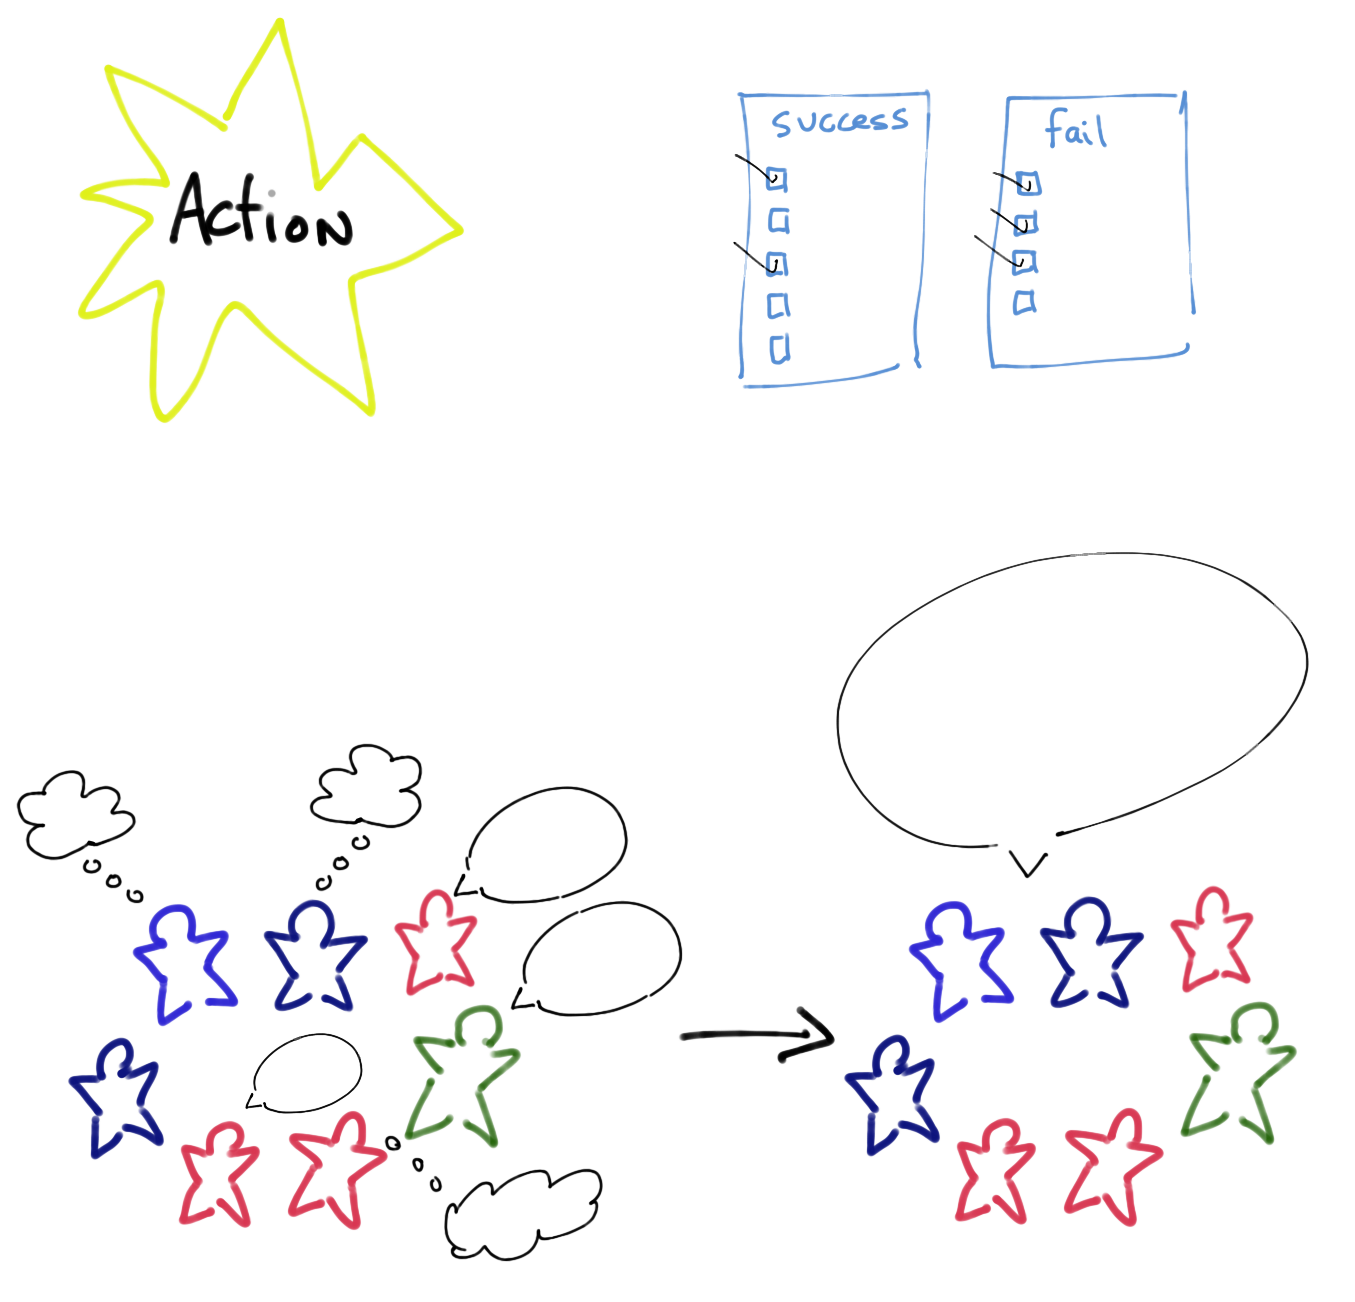 Action
success
fail